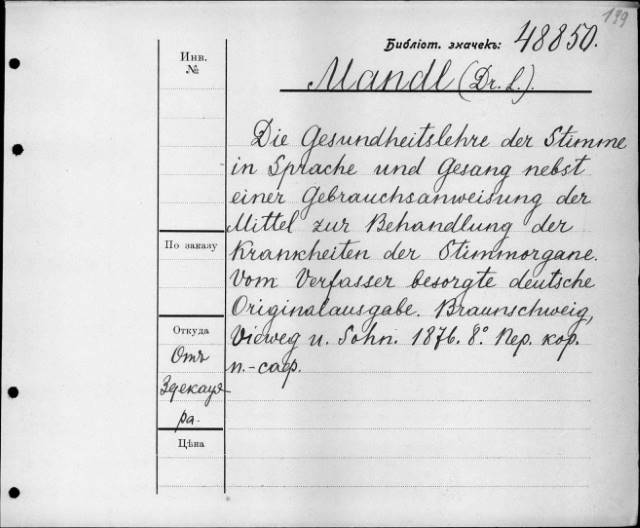 139
Библіот. значекъ: 48850.
Инв.
№
Mandl (Dr. L.).
Die Gesundheitslehre der Stimme
in Sprache und Gesang nebst
einer Gebrauchsanweisung der
Mittel zur Behandlung der
Krankheiten der Stimmorgane.
Vom Verfasser besorgte deutsche
Originalausgabe. Braunschweig,
Vieweg u. Sohn. 1876. 8° Пер. кор.
п.-саф.
По заказу
Откуда
Отъ
Здекауе
ра.
Цѣна